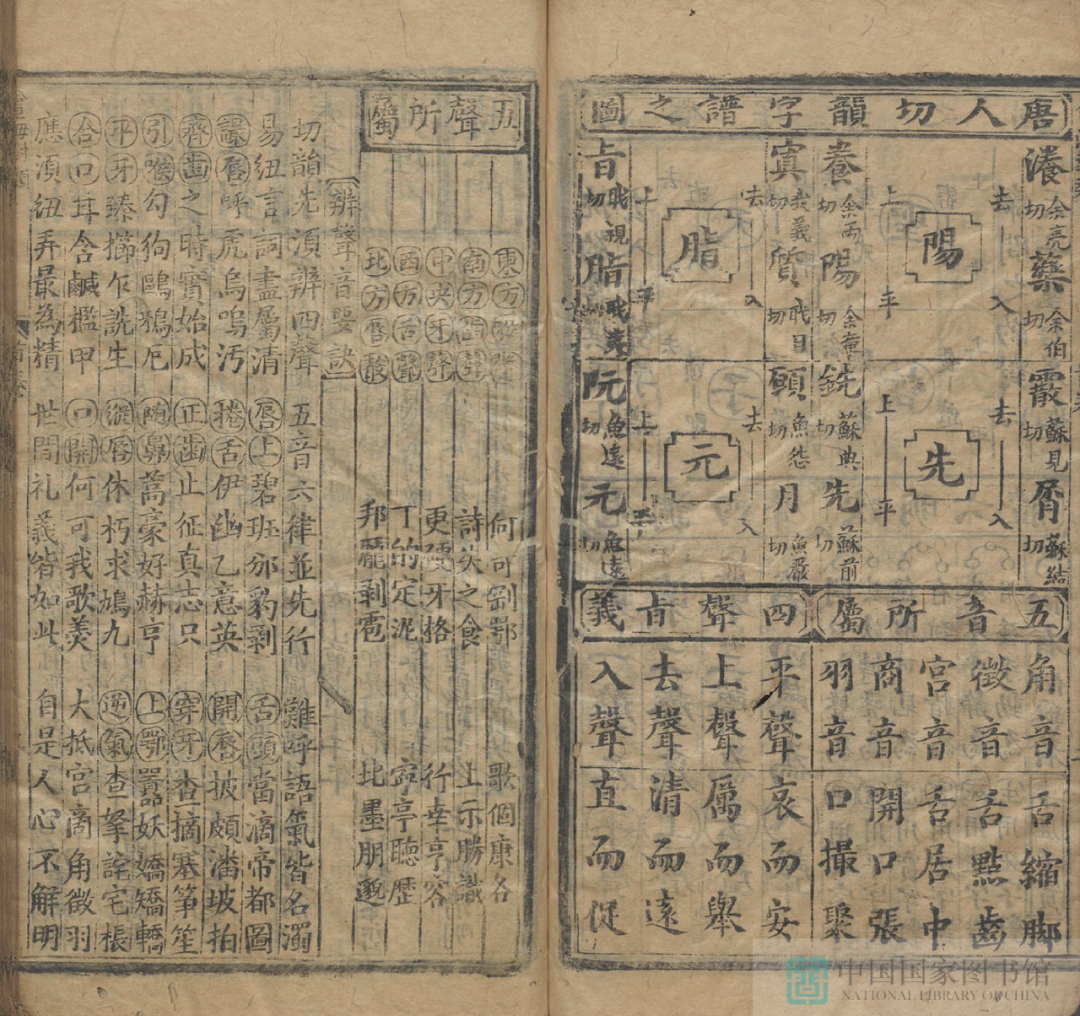 唐人切韻字譜之圖
漾余亮切 藥余伯切
去 入
陽
上 平
養余兩切 陽余章切
霰蘇見切 屑蘇結切
去 入
先
上 平
銑蘇典切 先蘇前切
寘支義切 質職日切
去 入
脂
上 平
旨職視切 脂職夷切
願魚怨切 月魚厥切
去 入
元
上 平
阮魚遠切 元魚遠切
五音所屬
角音舌縮脚
徵音舌點齒
宮音舌居中
商音開口張
羽音口撮聚
四聲旨義
平聲哀而安
上聲厲而舉
去聲清而遠
入聲直而促
五聲所屬
東方喉聲 何可剛鄂 歌個康各
南方齒聲 詩失之食 止示勝識
中央牙聲 更硬牙格 行幸亨客
西方舌聲 丁的定泥 寧亭聽歷
北方唇聲 邦龐剝雹 北墨朋邈
辨聲音要訣
切韻先須辨四聲 五音六律並先行 難呼語氣皆名濁
易紐言詞盡屬清 唇上碧班邠豹剝 舌頭當滴帝都圖
撮唇呼虎烏嗚汚 捲舌伊幽乙意英 開唇坡頗潘坡拍
齊齒之時實始成 正齒止征真志只 穿牙查摘塞筝笙
引喉勾狗鷗鵶厄 隨鼻蒿豪好赫亨 上鄂囂妖嬌矯轎
平牙臻櫛乍詵生 縱唇休朽求鳩九 逆氣查拏詫宅棖
合口耳含鹹檻甲 口開何可我歌羹 大抵宮商角徵羽
應須紐弄最為精 世間礼義皆如此 自是人心不解明
中国国家图书馆
NATIONAL LIBRARY OF CHINA